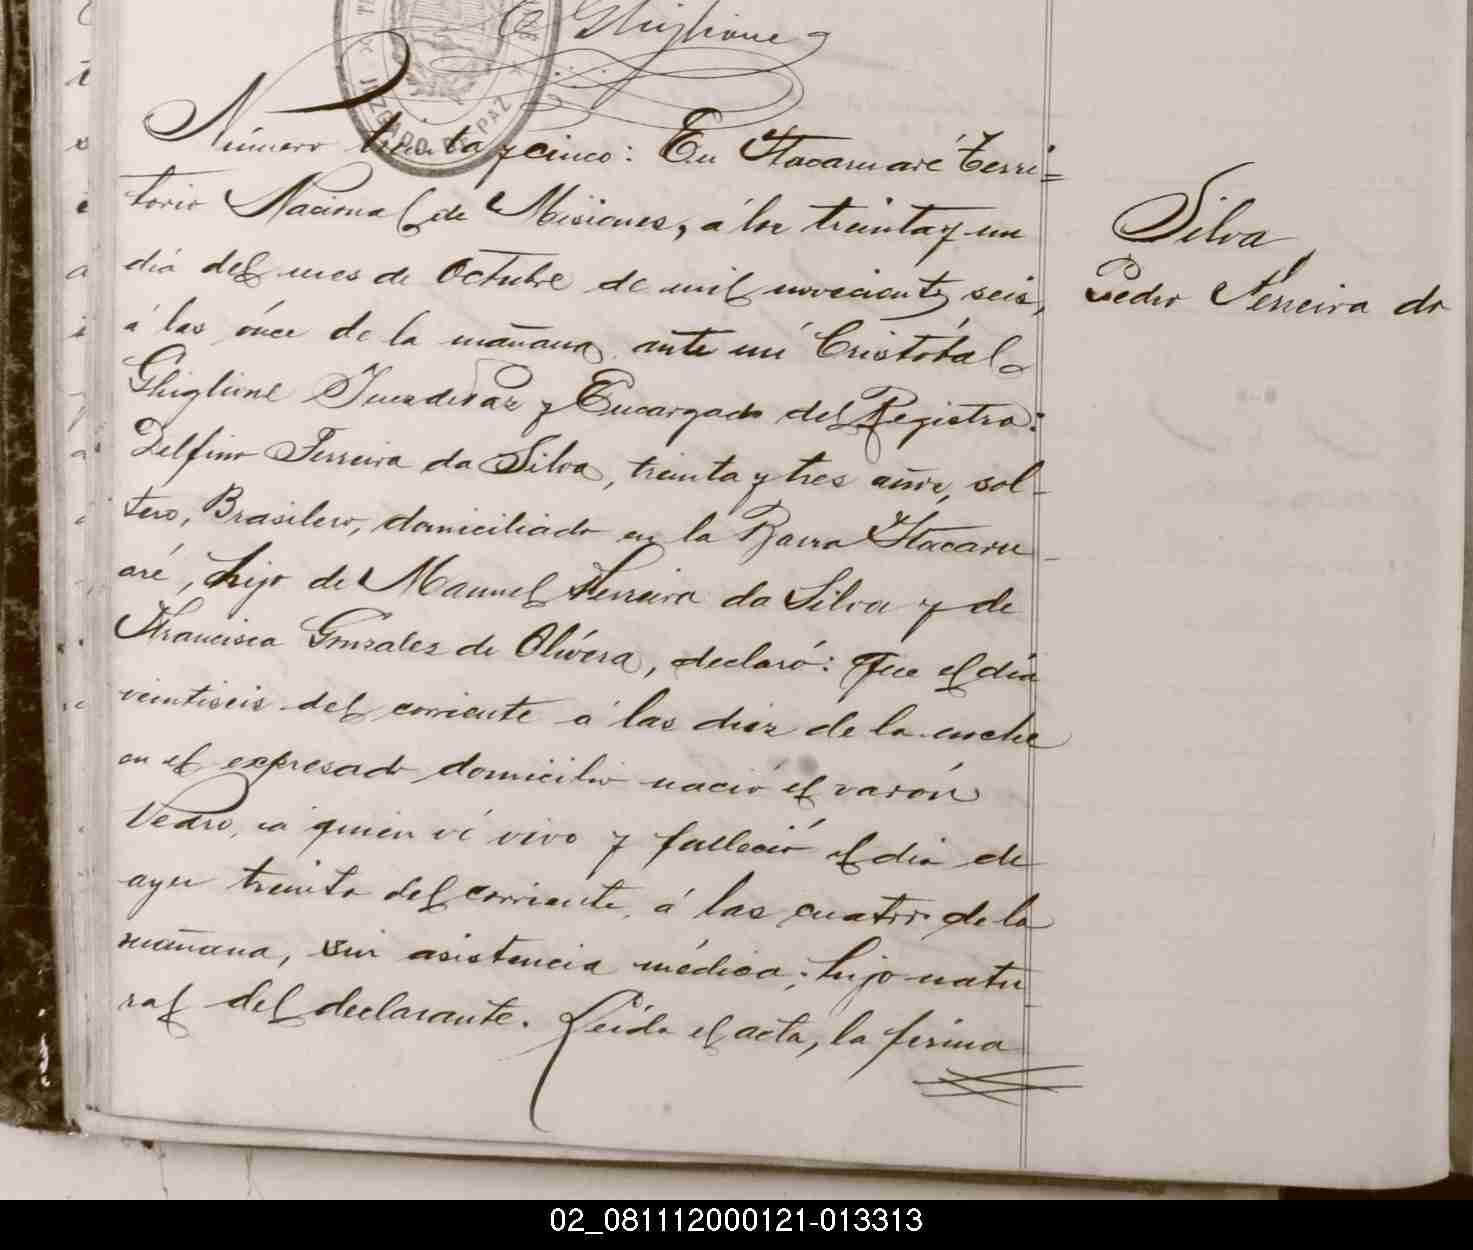 Ghiglione
JUZGADO DE PAZ
Número treinta y cinco: En Itacaruaré Terri=
torio Nacional de Misiones, á los treinta y un
dia del mes de Octubre de mil novecientos seis,
á las ónce de la mañana ante mi Cristóbal
Ghiglione Juez de Paz y Encargado del Registro:
Delfino Ferreira da Silva, treinta y tres años, sol-
tero, Brasilero, domiciliado en la Barra Itacaru-
aré, hijo de Manuel Ferreira da Silva y de
Francisca Gonzalez de Olivera, declaró: Que el dia
veintiseis del corriente á las diez de la noche
en el expresado domicilio nació el varón
Pedro, á quien ví vivo y falleció el dia de
ayer treinta del corriente, á las cuatro de la
mañana, sin asistencia médica; hijo natu-
ral del declarante. Leida el acta, la firma
Silva
Pedro Ferreira da
02_081112000121-013313